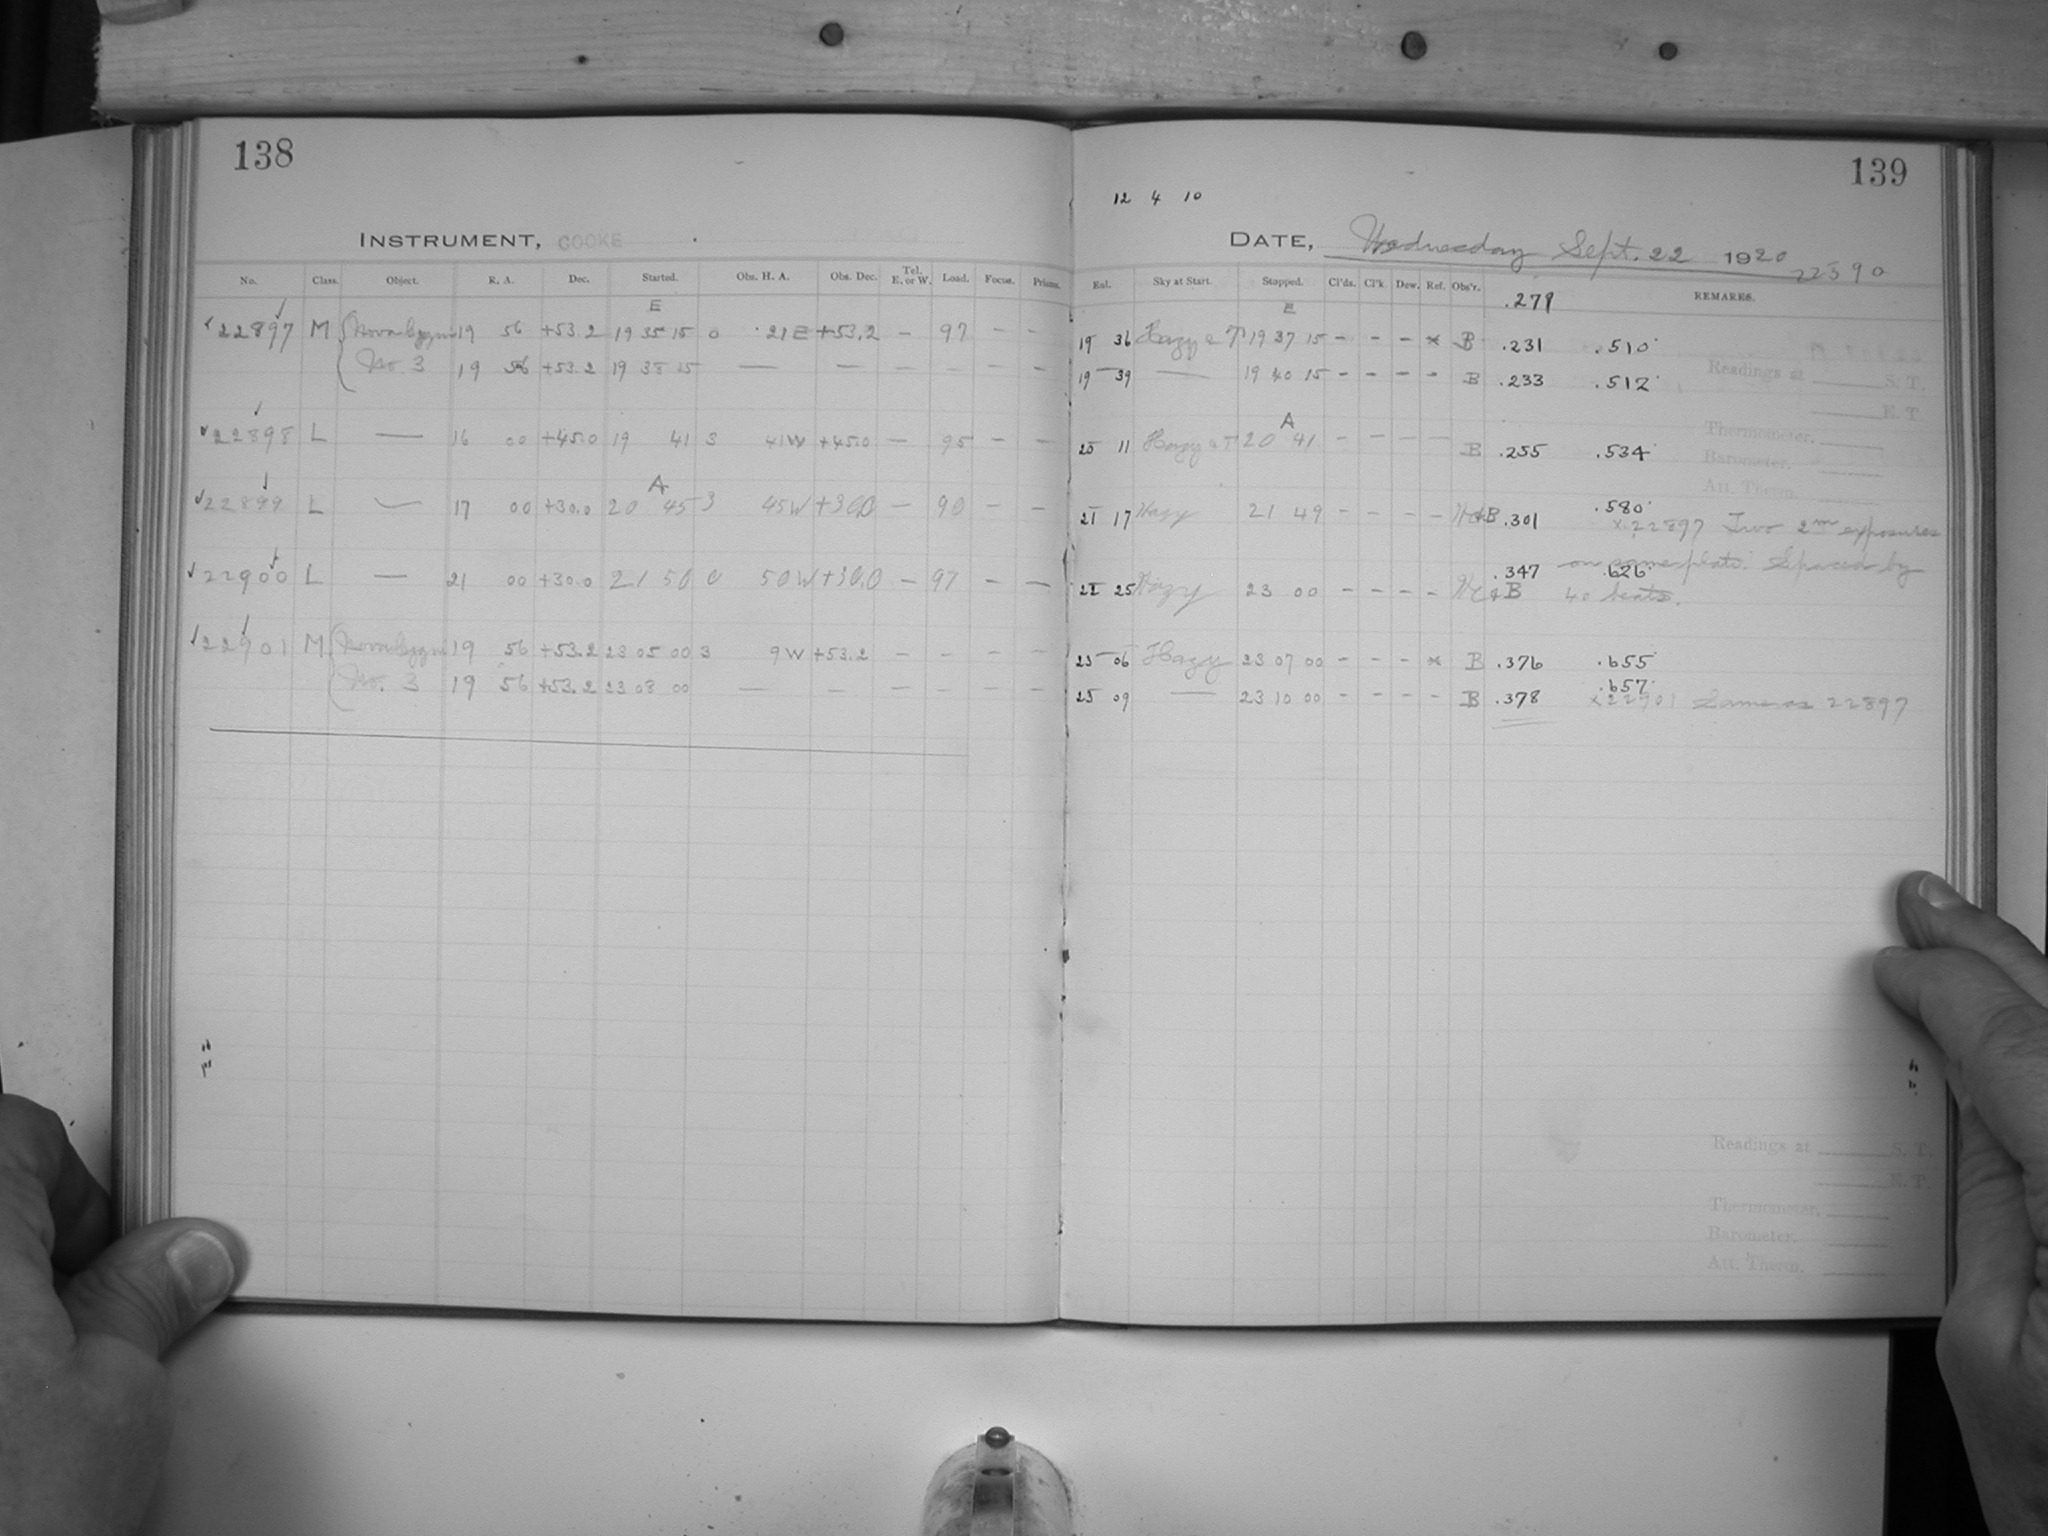 138
INSTRUMENT, COOKE
No. Class. Object. R. A. Dec. Started. Obs. H. A. Obs. Dec. Tel. E. or W. Load. Focus. Prisms.
E
22897 M 19 56 +53.2 19 35 15 0 21 E +53.2 — 97 — —
No. 3 19 56 +53.2 19 38 15 — — — — — —
22898 L — 16 00 +45.0 19 41 3 41 W +45.0 — 95 — —
A
22899 L — 17 00 +30.0 20 45 3 45 W +30.0 — 90 — —
22900 L — 21 00 +30.0 21 50 0 50 W +30.0 — 97 — —
22901 M 19 56 +53.2 23 05 00 3 9 W +53.2 — — — —
No. 3 19 56 +53.2 23 08 00 — — — — — —
139
12 4 10
DATE, Wednesday Sept. 22 1920
22590
Eql. Sky at Start. Stopped. Cl'ds. Cl'k. Dew. Ref. Obs'r. .279 REMARKS.
E
19 36 Hazy & 19 37 15 – – – x B .231 .510
19 39 — 19 40 15 – – – – B .233 .512
Readings at S. T.
E. T.
A
20 11 Hazy & 20 41 – – – – B .255 .534
Thermometer.
Barometer.
Att. Therm.
21 17 Hazy 21 49 – – – – .301 .580
x 22897 Two 2m exposures
on same plate. Spaced by
40 beats.
22 25 Hazy 23 00 – – – – & B .347 .626
23 06 Hazy 23 07 00 – – – x B .376 .655
23 09 — 23 10 00 – – – – B .378 .657
x 22901 Same as 22897
Readings at S. T.
N. T.
Thermometer.
Barometer.
Att. Therm.